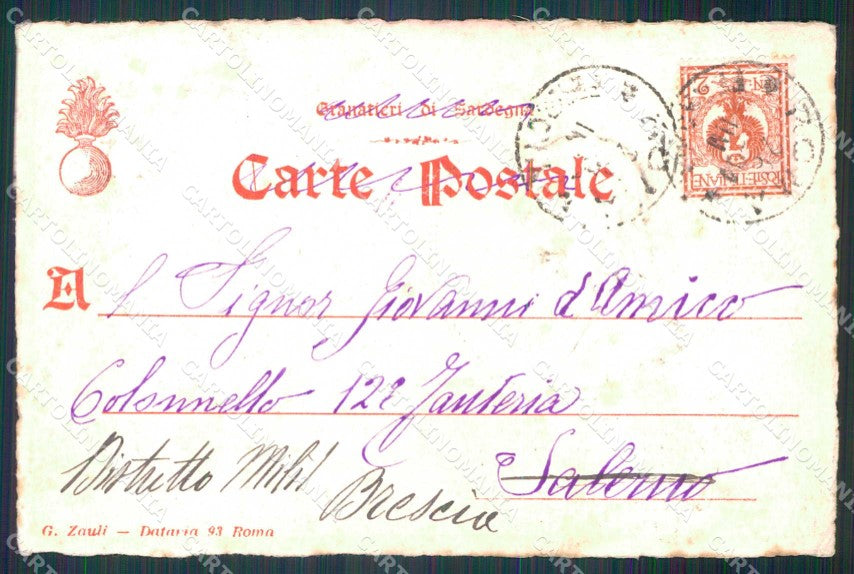 Granatieri di Sardegna
Carte Postale
A l Signor Giovanni d'Amico
Colonnello 12º Fanteria
Salerno
Distretto Milit
Brescia
G. Zauli — Dataria 93 Roma
POSTE ITALIANE
CARTOLINOMANIA